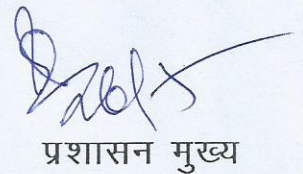 प्रशासन मुख्य